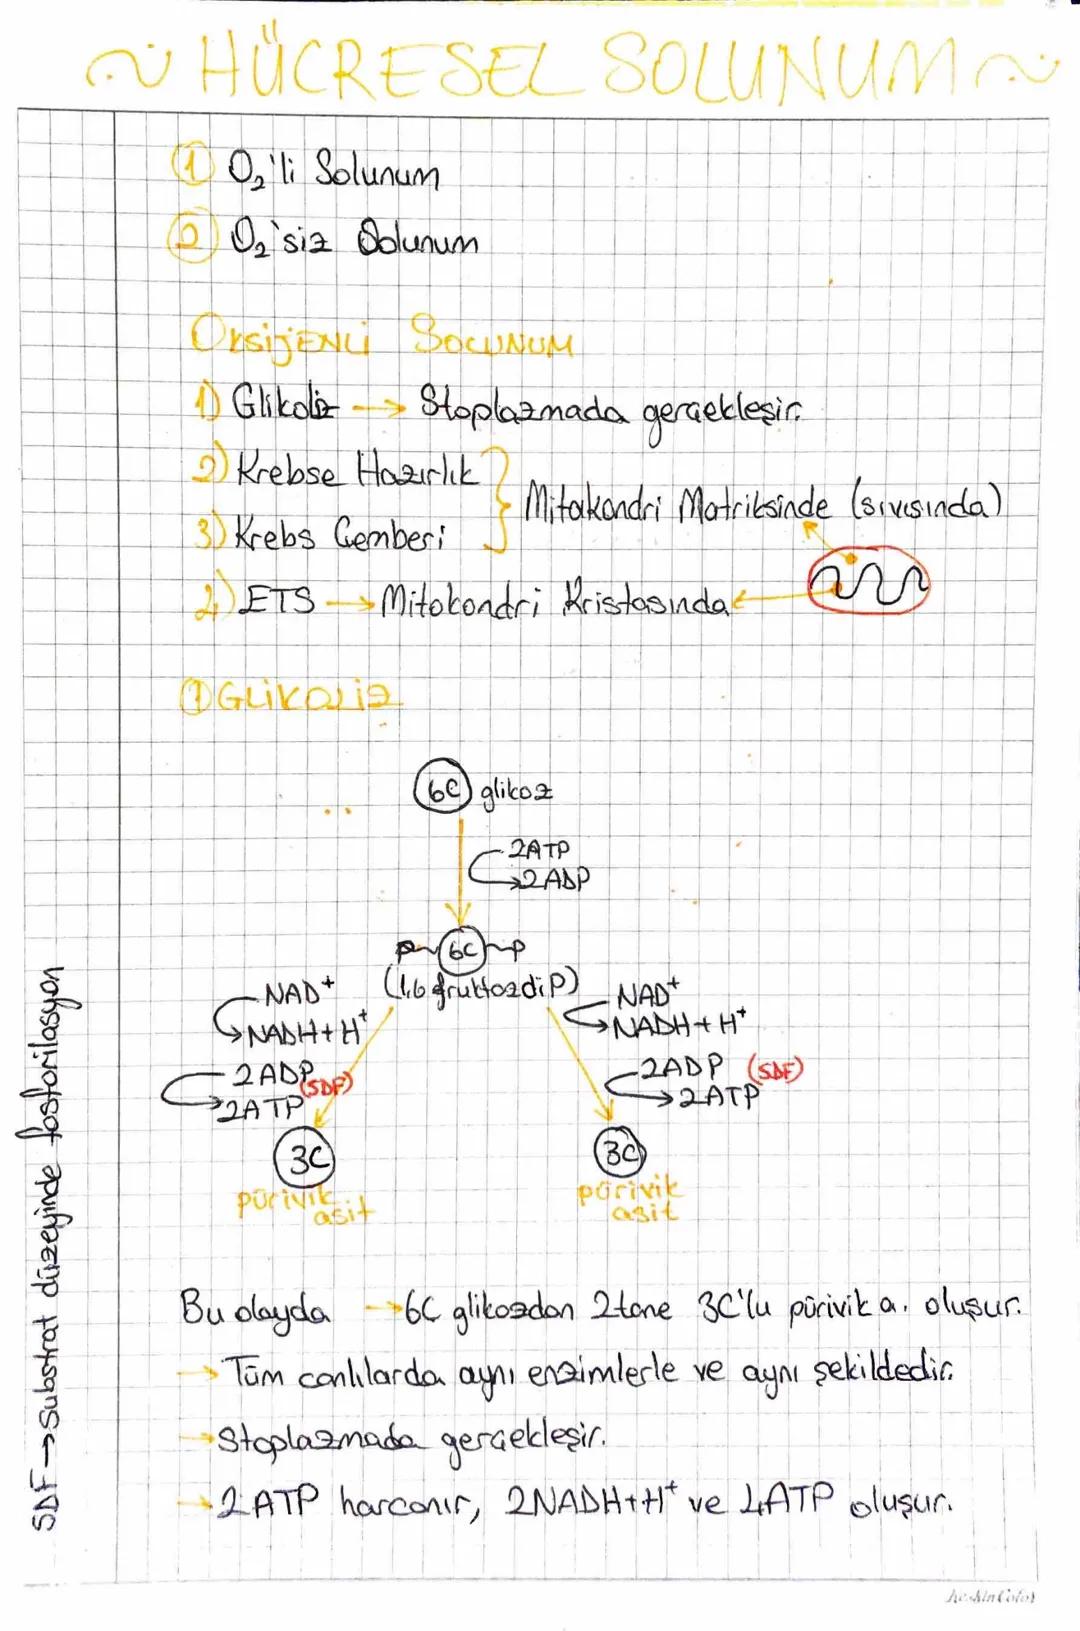 ~ HÜCRESEL SOLUNUM ~
① O₂'li Solunum
② O₂'siz Solunum
OKSİJENLİ SOLUNUM
1) Glikoliz → Stoplazmada gerçekleşir.
2) Krebse Hazırlık
3) Krebs Çemberi
} Mitokondri Matriksinde (sıvısında)
4) ETS → Mitokondri Kristasında
① GLİKOLİZ
6C glikoz
2ATP
2ADP
P~6C~P
(1,6 fruktozdiP)
NAD⁺
NADH+H⁺
2ADP
(SDF)
2ATP
3C
pürivik
asit
NAD⁺
NADH+H⁺
2ADP (SDF)
2ATP
3C
pürivik
asit
Bu olayda → 6C glikozdan 2 tane 3C'lu pürivik a. oluşur.
→ Tüm canlılarda aynı enzimlerle ve aynı şekildedir.
→ Stoplazmada gerçekleşir.
→ 2 ATP harcanır, 2NADH+H⁺ ve 4ATP oluşur.
SDF → Substrat düzeyinde fosforilasyon
KeskinColor